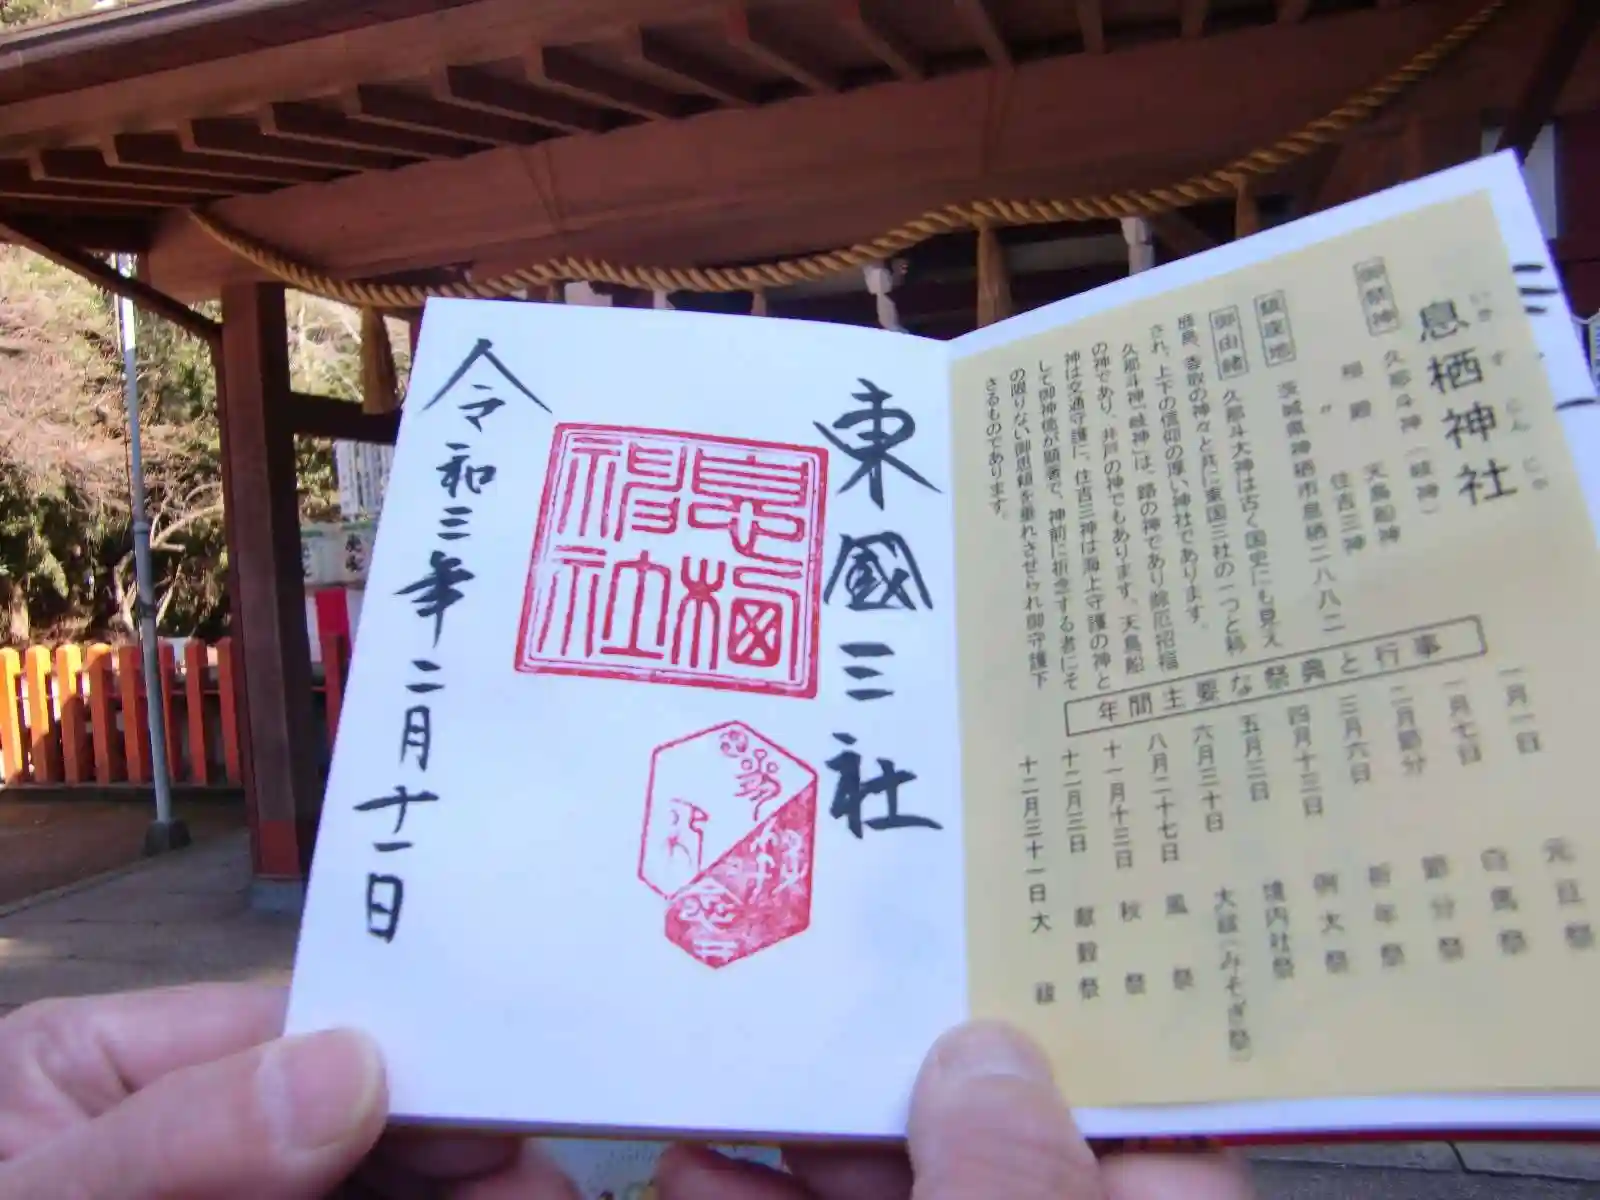 東國三社
息栖神社
令和三年二月十一日
息栖神社
いきすじんじゃ
御祭神
久那斗神(岐神)
天鳥船神
相殿 住吉三神
鎮座地
茨城県神栖市息栖二八八二
御由緒
久那斗大神は古く国史にも見え
鹿島、香取の神々と共に東国三社の一つと称
され、上下の信仰の厚い神社であります。
久那斗神「岐神」は、路の神であり除厄招福
の神であり、井戸の神でもあります。天鳥船
神は交通守護に、住吉三神は海上守護の神と
して御神徳が顕著で、神前に祈念する者にそ
の限りない御恩頼を垂れさせられ御守護下
さるものであります。
年間主要な祭典と行事
一月一日 元旦祭
一月七日 白馬祭
二月節分 節分祭
三月六日 祈年祭
四月十三日 例大祭
五月三日 境内社祭
六月三十日 大祓(みそぎ祭)
八月二十七日 風祭
十一月十三日 秋祭
十二月三日 献穀祭
十二月三十一日 大祓